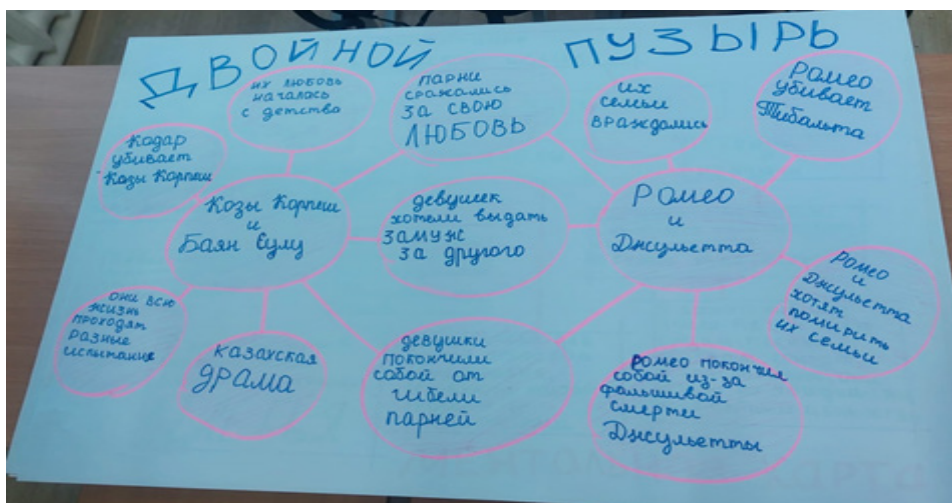 ДВОЙНОЙ ПУЗЫРЬ
их любовь
началась
с детства
парни
сражались
за свою
ЛЮБОВЬ
их
семьи
враждовались
Ромео
убивает
Тибальта
Кодар
убивает
Козы Корпеш
Козы Корпеш
и
Баян Сулу
девушек
хотели выдать
замуж
за другого
Ромео
и
Джульетта
они всю
жизнь
проходят
разные
испытания
казахская
драма
девушки
покончили
собой от
гибели
парней
Ромео покончил
собой из-за
фальшивой
смерти
Джульетты
Ромео
и
Джульетта
хотят
помирить
их семьи